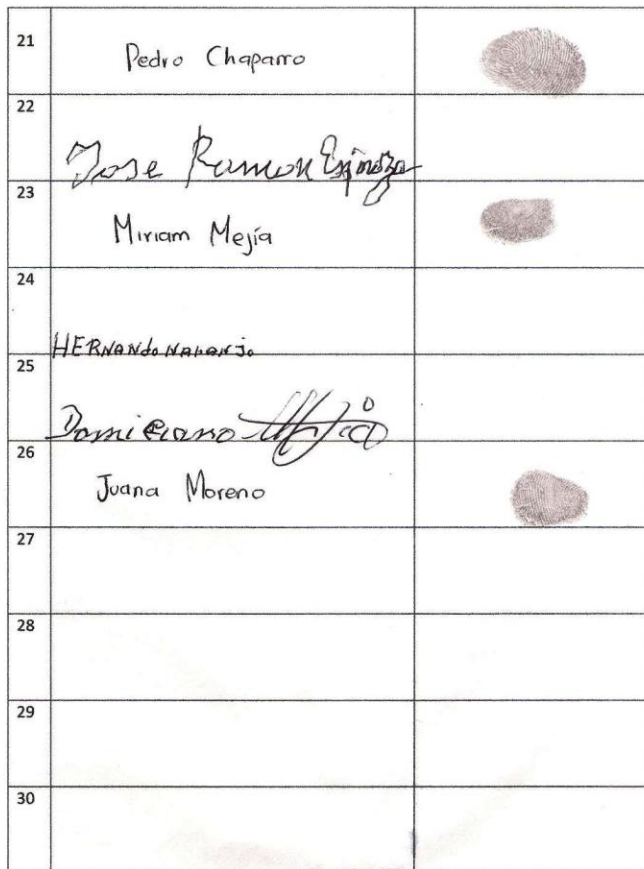 21
Pedro Chaparro
22
Jose Ramon Espinoza
23
Miriam Mejía
24
HERNANdo NARANJo
25
Domiciano Mejia
26
Juana Moreno
27
28
29
30